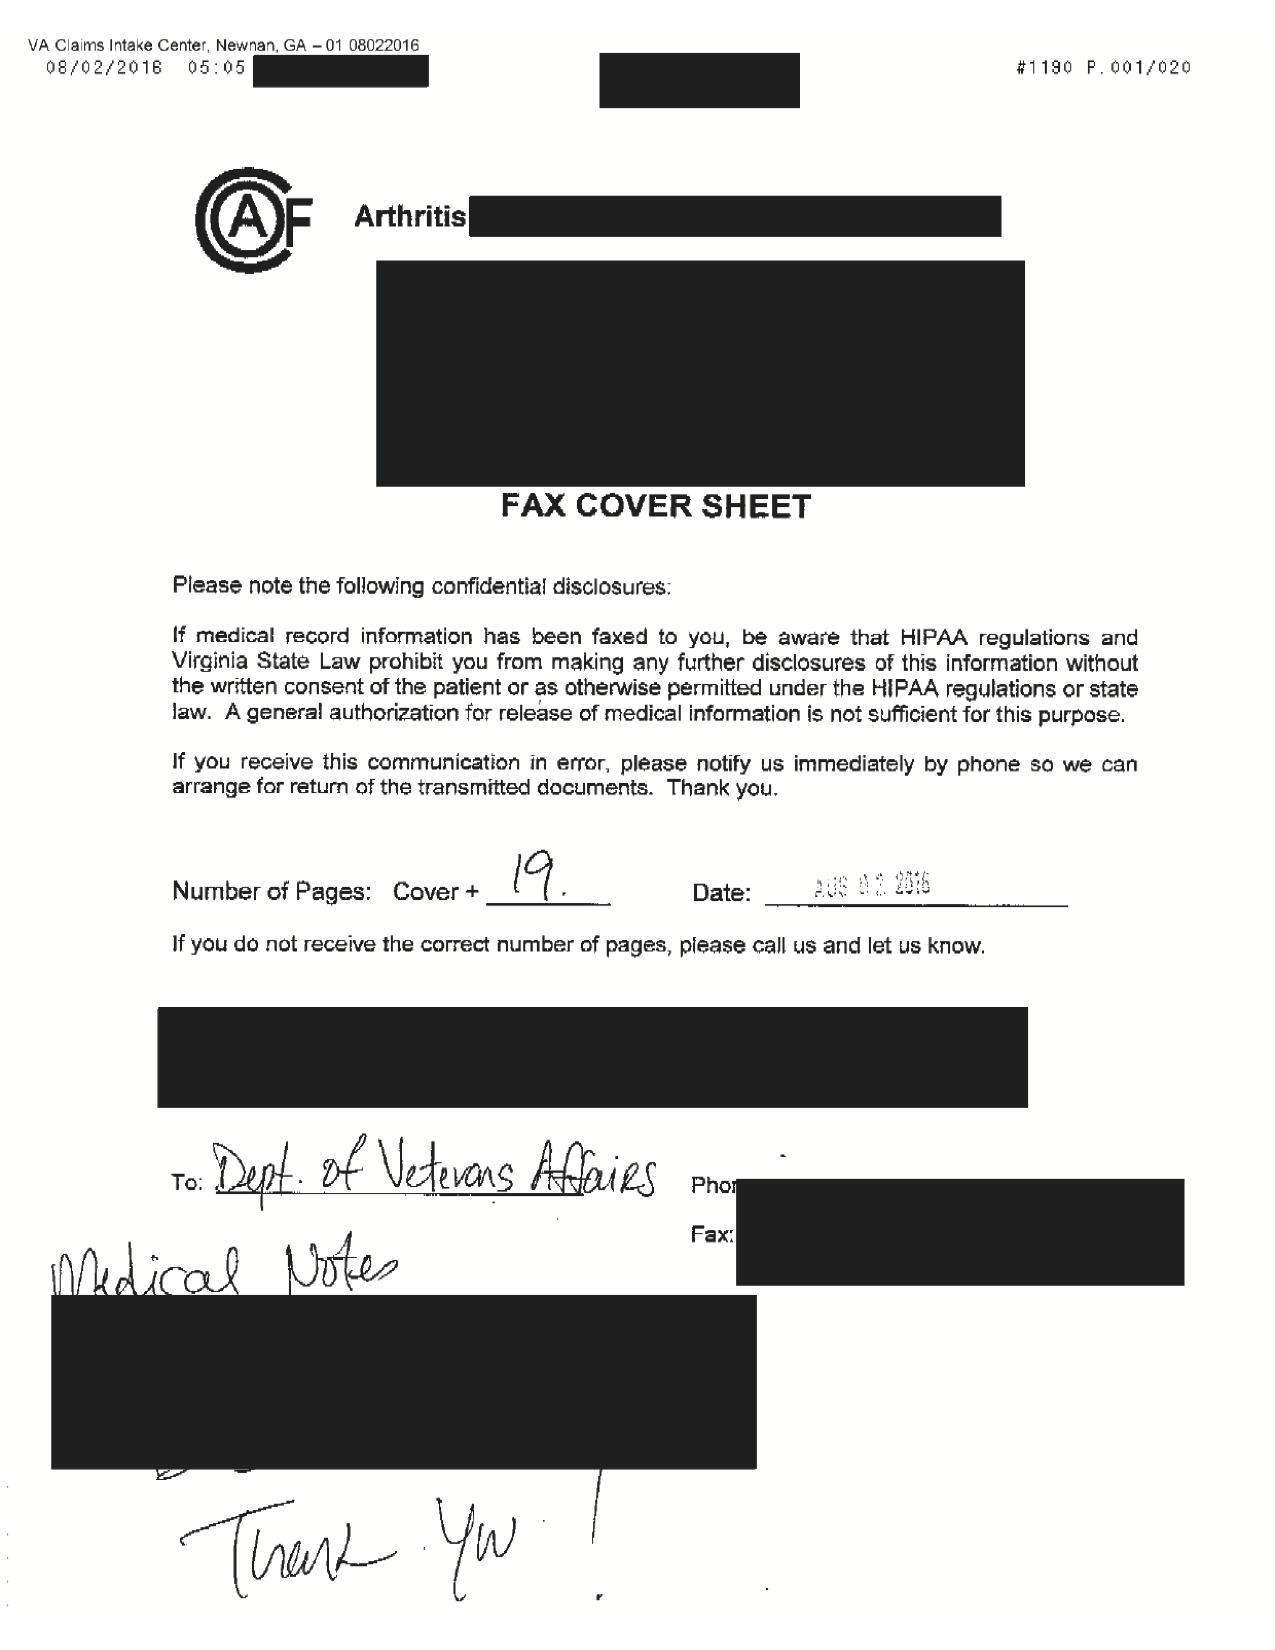 VA Claims Intake Center, Newnan, GA – 01 08022016
08/02/2016 05:05 #1190 P.001/020
CAF
Arthritis
FAX COVER SHEET
Please note the following confidential disclosures:
If medical record information has been faxed to you, be aware that HIPAA regulations and
Virginia State Law prohibit you from making any further disclosures of this information without
the written consent of the patient or as otherwise permitted under the HIPAA regulations or state
law. A general authorization for release of medical information is not sufficient for this purpose.
If you receive this communication in error, please notify us immediately by phone so we can
arrange for return of the transmitted documents. Thank you.
Number of Pages: Cover + 19. Date: AUG 02 2016
If you do not receive the correct number of pages, please call us and let us know.
To: Dept. of Veterans Affairs
Fax:
Medical Notes
Thank You !